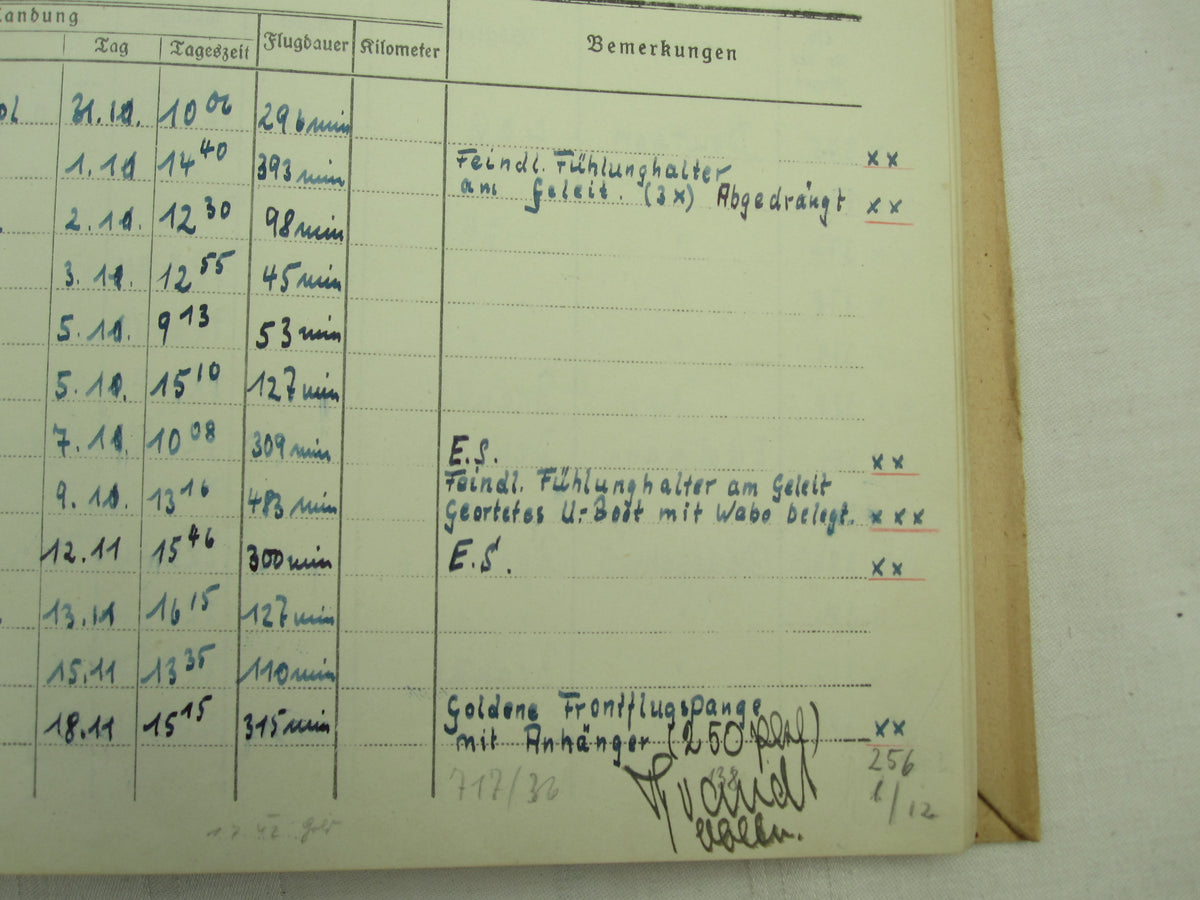 Landung
Tag Tageszeit Flugdauer Kilometer Bemerkungen
31.10. 10 06 296 min xx
1.10 14 40 393 min Feindl. Fühlunghalter
am Geleit. (3x) Abgedrängt xx
2.10. 12 30 98 min
3.10. 12 55 45 min
5.10. 9 13 53 min
5.10. 15 10 127 min
7.10. 10 08 309 min E.S. xx
Feindl. Fühlunghalter am Geleit
9.10. 13 16 483 min Geortetes U-Boot mit Wabo belegt. xxx
12.11 15 46 300 min E.S. xx
13.11 16 15 127 min
15.11 13 35 110 min
Goldene Frontflugspange
18.11 15 15 315 min mit Anhänger (250 xx
717/36 138 256
/12